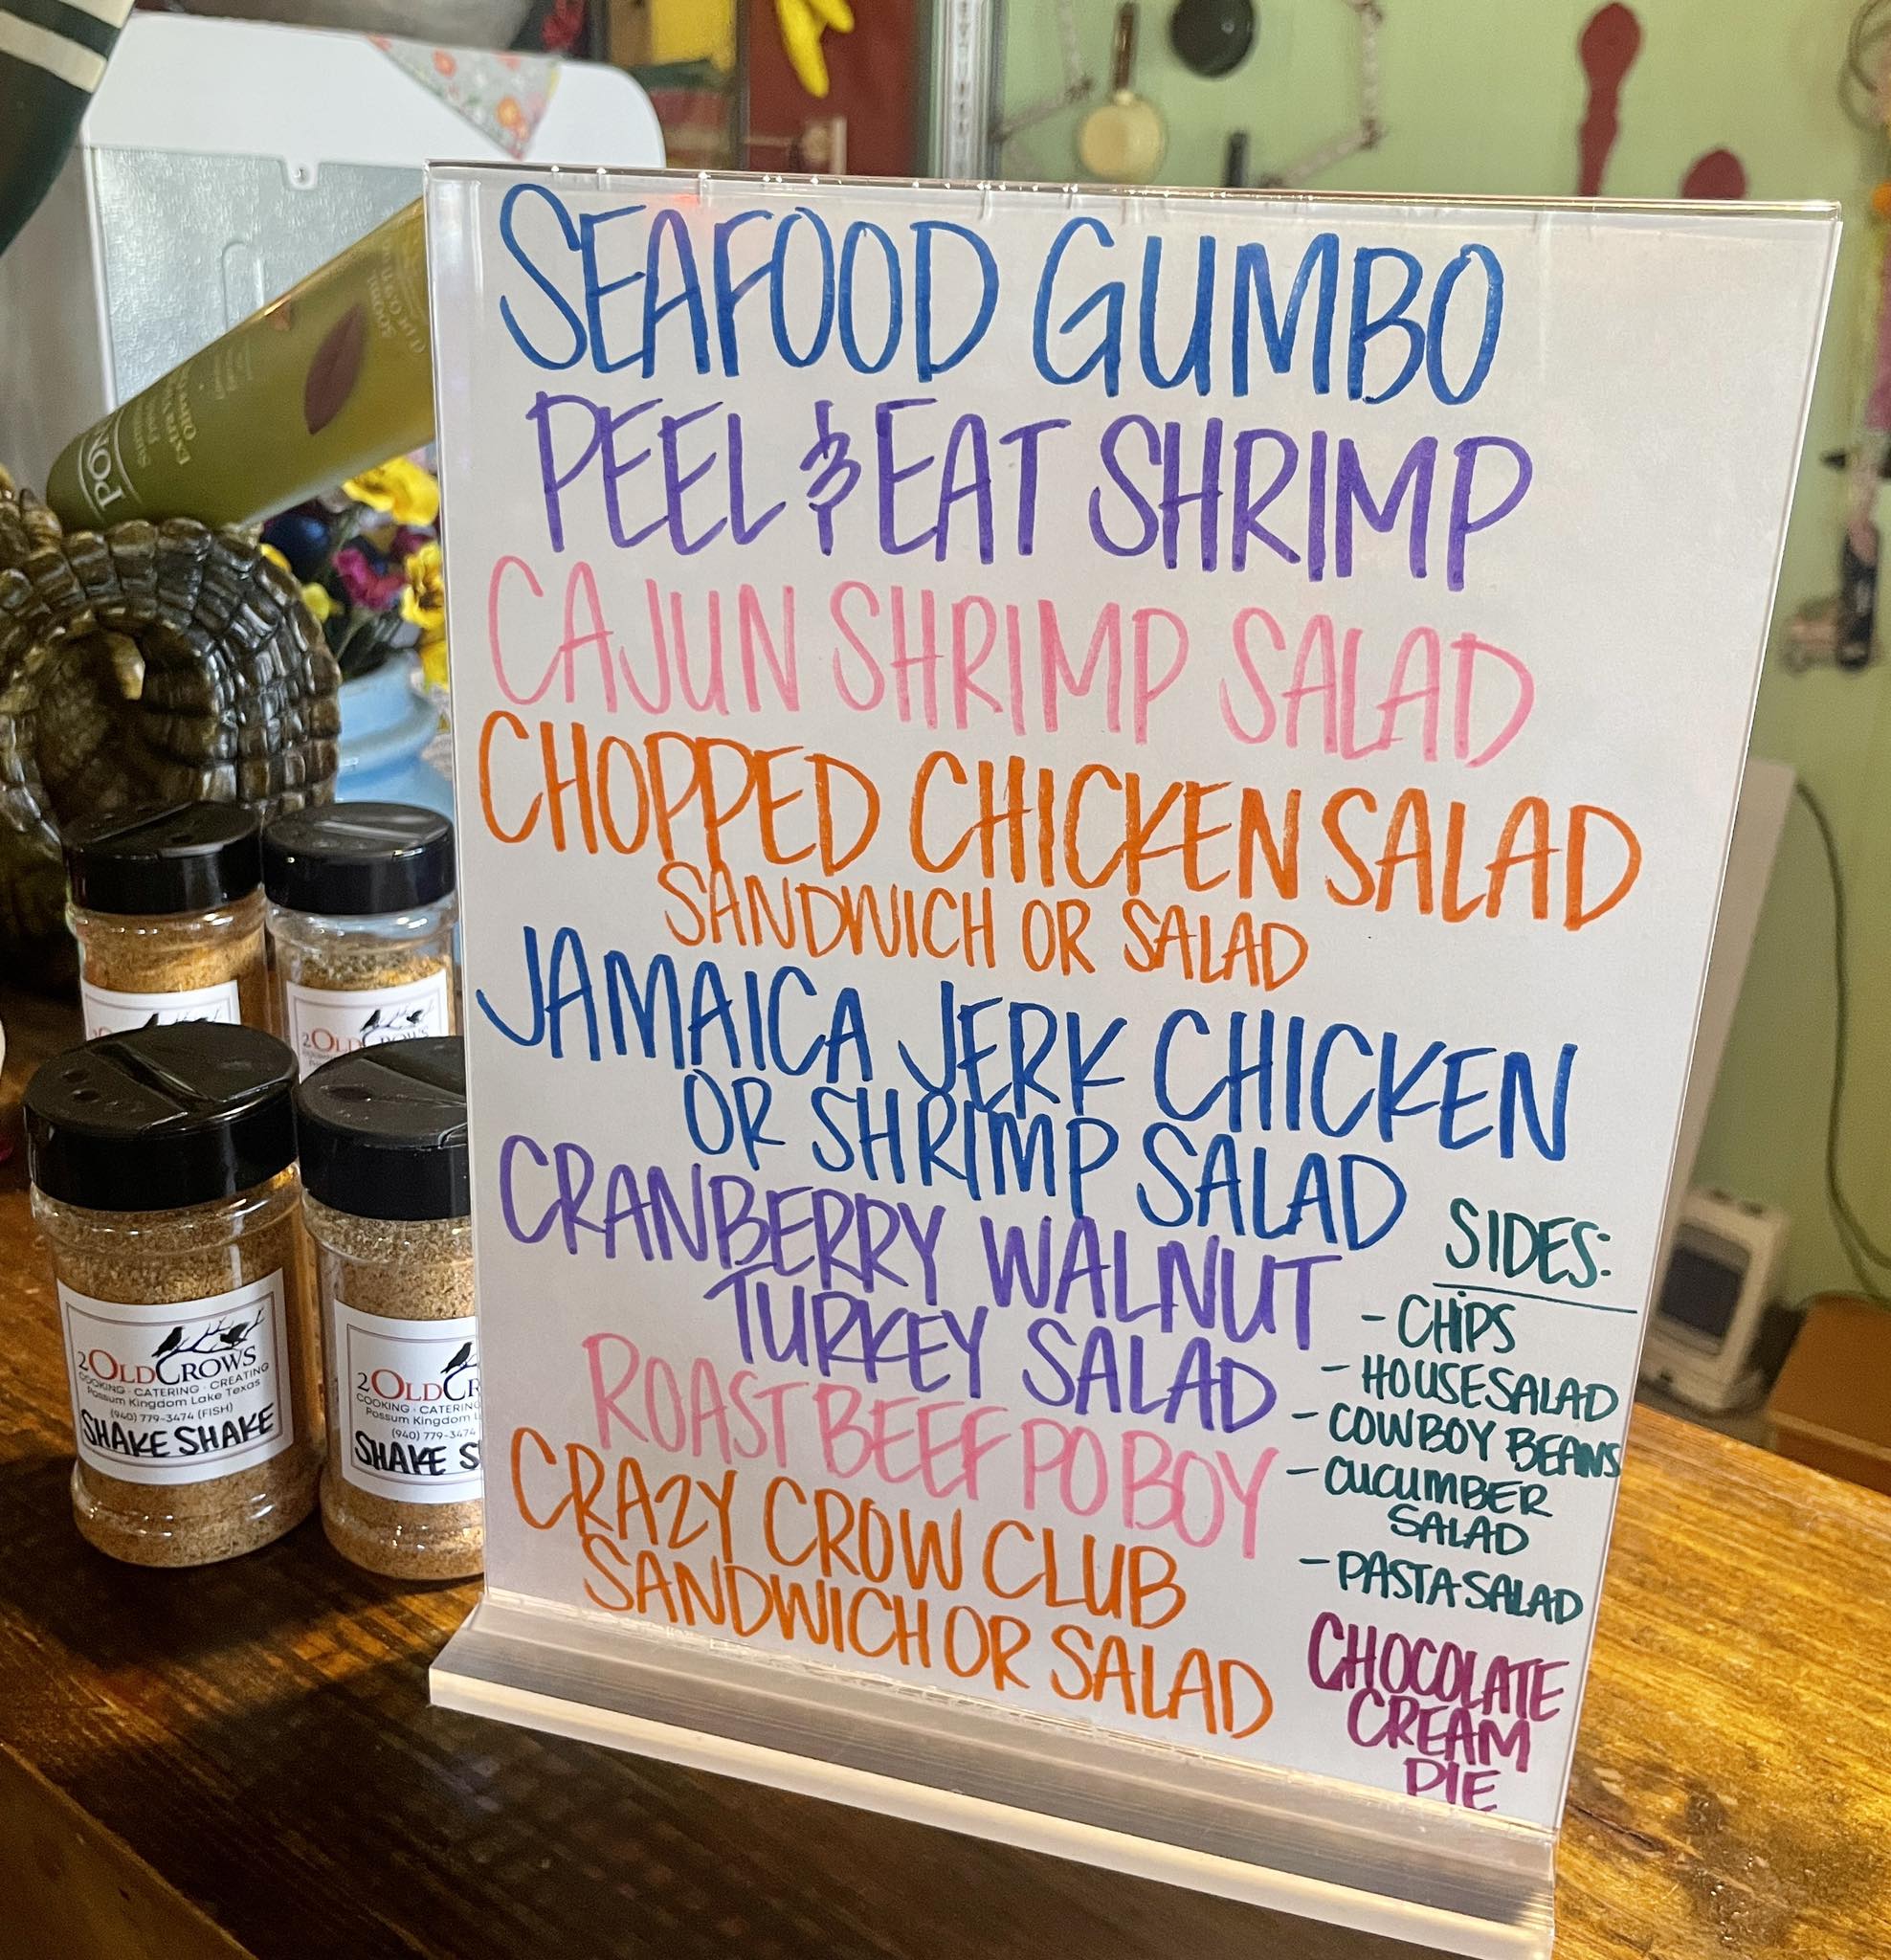 SEAFOOD GUMBO
PEEL & EAT SHRIMP
CAJUN SHRIMP SALAD
CHOPPED CHICKEN SALAD
SANDWICH OR SALAD
JAMAICA JERK CHICKEN
OR SHRIMP SALAD
CRANBERRY WALNUT
TURKEY SALAD
ROAST BEEF PO BOY
CRAZY CROW CLUB
SANDWICH OR SALAD
SIDES:
- CHIPS
- HOUSE SALAD
- COWBOY BEANS
- CUCUMBER
SALAD
- PASTA SALAD
CHOCOLATE
CREAM
PIE
2 OLD CROWS
COOKING · CATERING · CREATING
Possum Kingdom Lake Texas
(940) 779-3474 (FISH)
SHAKE SHAKE
2 OLD CR
COOKING · CATERING
Possum Kingdom L
(940) 779-3474
SHAKE S
2 OLD
2 OLD CROWS